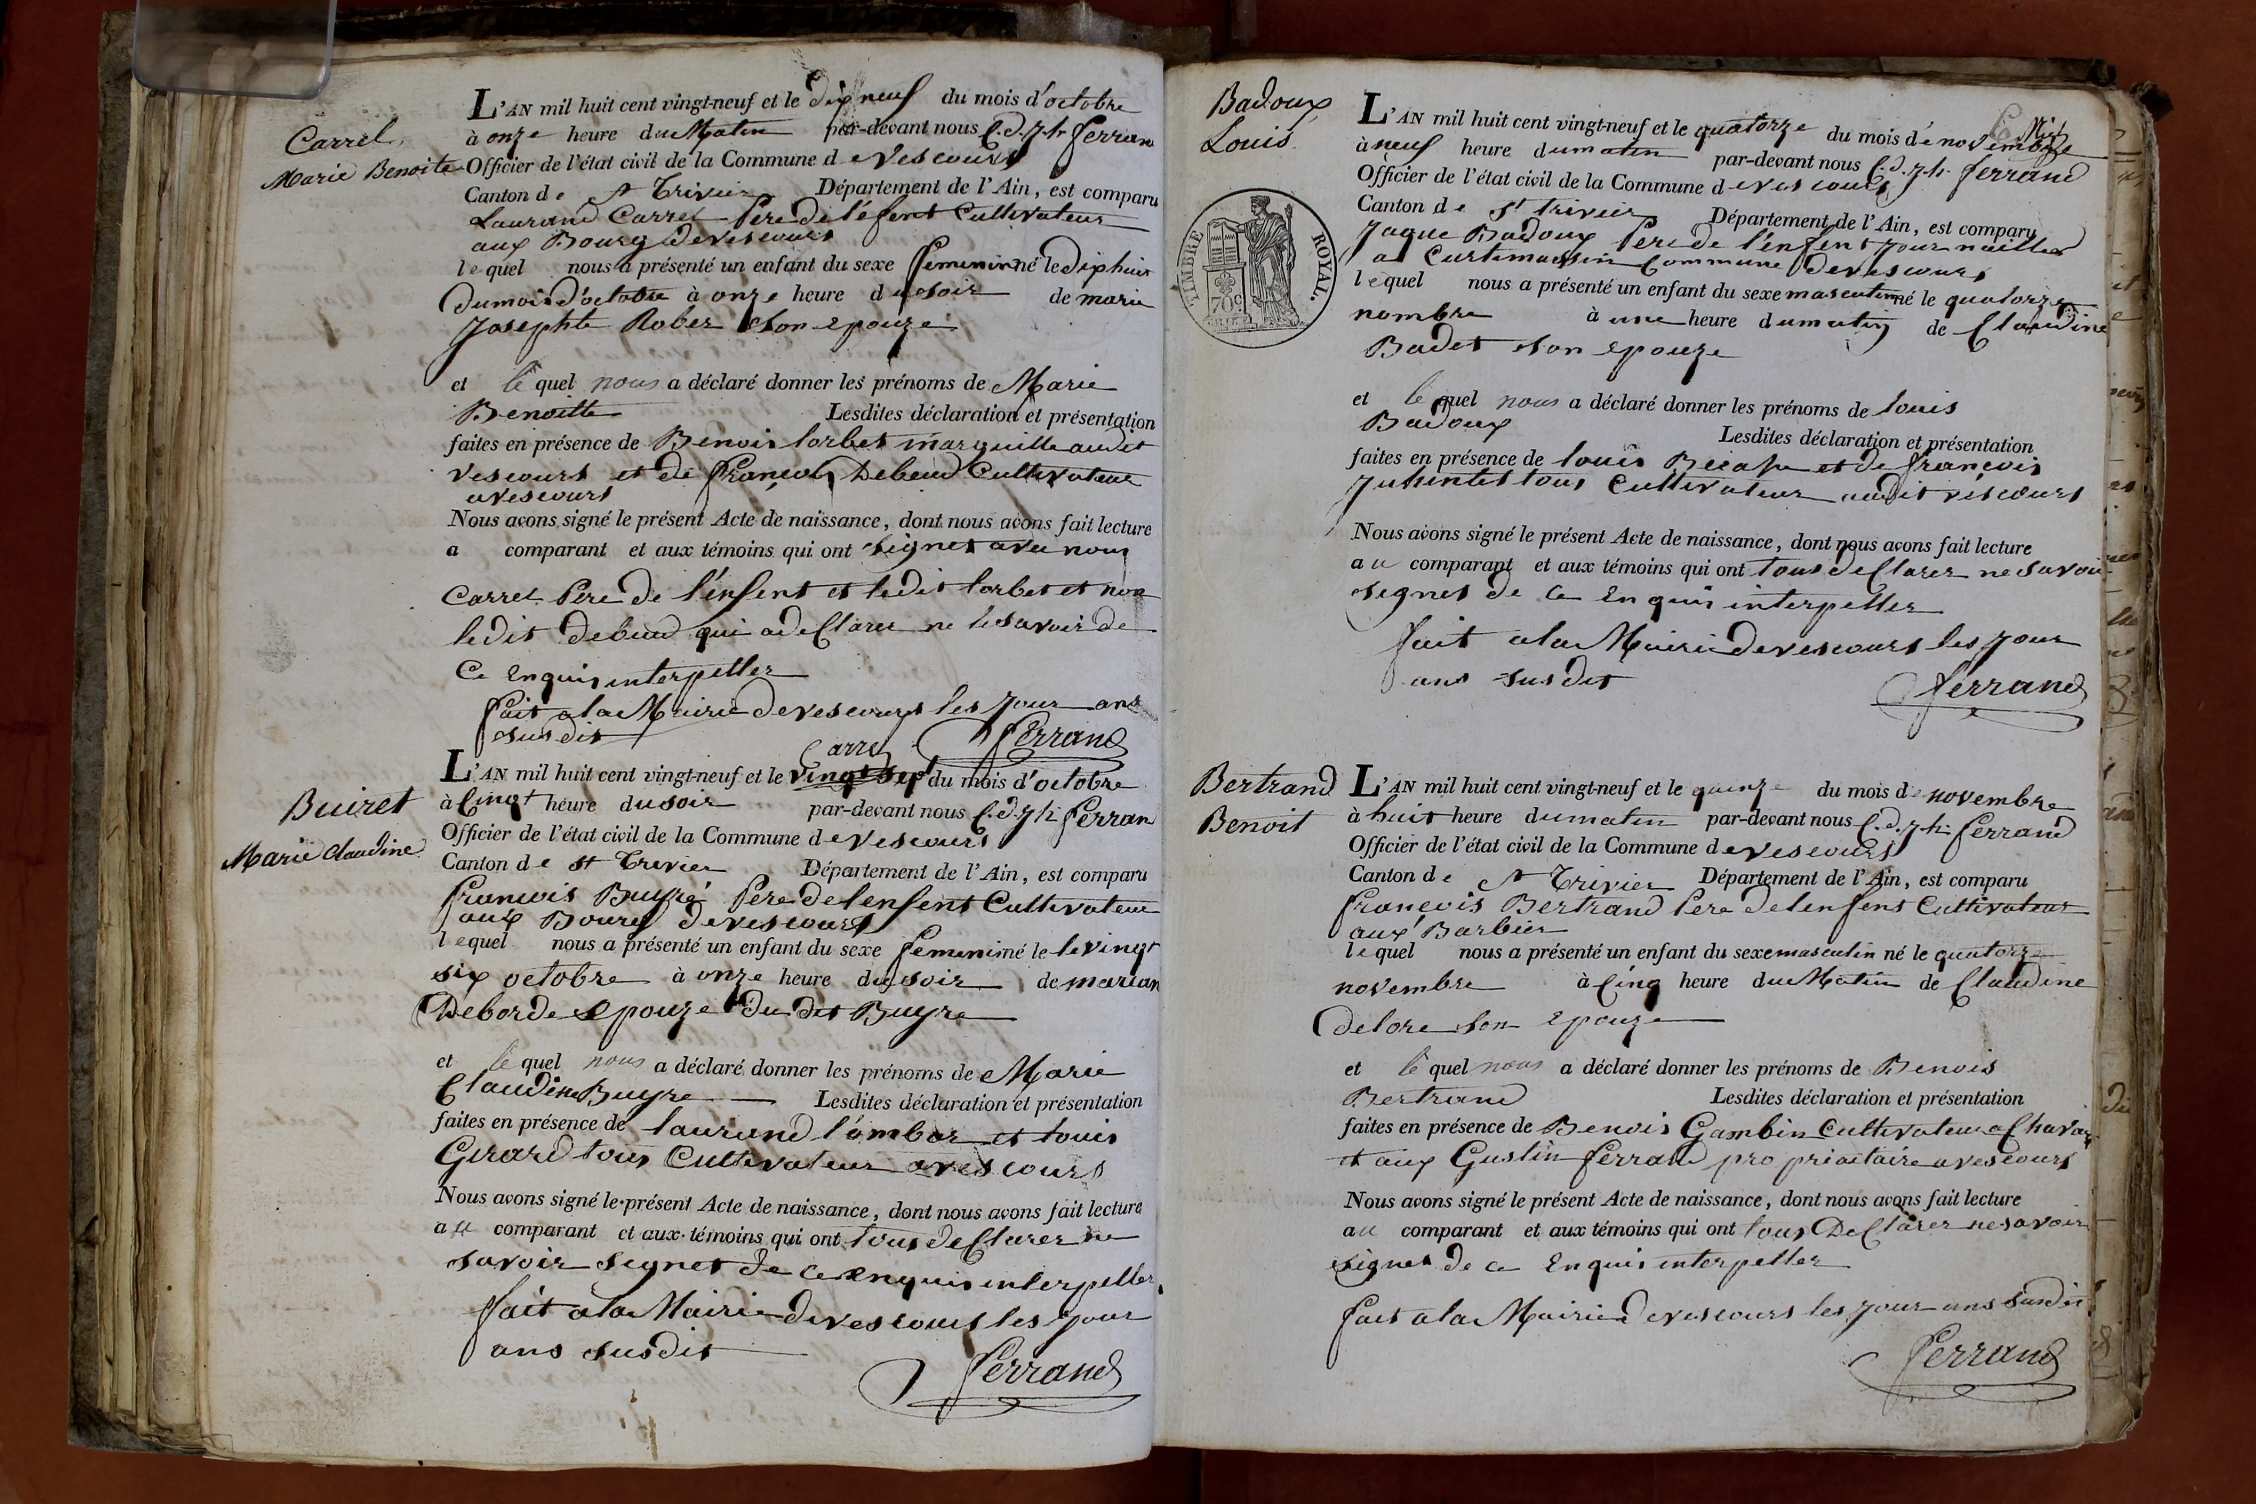 Carrel
Marie Benoite
L'AN mil huit cent vingt-neuf et le dix neuf du mois d'octobre
à onze heure du Matin par-devant nous C. d. Jh ferran
Officier de l'état civil de la Commune de vescours
Canton de st Trivier Département de l'Ain, est comparu
Laurand Carrel Pere de l'éfent Cultivateur
aux Bourg de vescours
lequel nous a présenté un enfant du sexe feminin né le dix huit
du mois d'octobre à onze heure du soir de marie
Josephte Rober son epouze
et le quel nous a déclaré donner les prénoms de Marie
Benoitte Lesdites déclaration et présentation
faites en présence de Benois lorbet marguille audit
vescours et de françois Debeud Cultivateur
a vescours
Nous avons signé le présent Acte de naissance, dont nous avons fait lecture
a comparant et aux témoins qui ont signet avec nous
Carrel Pere de l'énfent et ledit lorbet et non
ledit debeud qui a declarer ne le savoir de
Ce Enquis interpeller
fait a la Mairie de vescours les Jour ans
susdit
Carrel ferrand
Buiret
Marie Claudine
L'AN mil huit cent vingt-neuf et le vingt sept du mois d'octobre
à Cinqt heure du soir par-devant nous C. d. Jh ferran
Officier de l'état civil de la Commune de vescours
Canton de st Trivier Département de l'Ain, est comparu
francois Buyré Pere de lenfent Cultivateur
aux Bourg de vescours
lequel nous a présenté un enfant du sexe feminin né le le vingt
six octobre à onze heure du soir de marian
Deborde Epouze du dit Buyre
et le quel nous a déclaré donner les prénoms de Marie
Claudine Buyre Lesdites déclaration et présentation
faites en présence de laurand lombar et louis
Girard tous Cultivateur a vescours
Nous avons signé le présent Acte de naissance, dont nous avons fait lecture
au comparant et aux témoins qui ont tous declarer ne
savoir signet de ce enquis interpeller
fait a la Mairie de vescours les jour
ans susdit
ferrand
Badoux
Louis
TIMBRE ROYAL.
70c
L'AN mil huit cent vingt-neuf et le quatorze du mois de novembre
à neuf heure du matin par-devant nous C. d. Jh. ferrand
Officier de l'état civil de la Commune de vescours
Canton de st trivier Département de l'Ain, est comparu
Jaque Badoux Pere de l'énfent Journaillier
a Curtemaysin Commune de vescours
lequel nous a présenté un enfant du sexe masculin né le quatorze
nombre à une heure du matin de Claudine
Badet son epouze
et le quel nous a déclaré donner les prénoms de louis
Badoux Lesdites déclaration et présentation
faites en présence de louis et de françois
tous Cultivateur audit vescours
Nous avons signé le présent Acte de naissance, dont nous avons fait lecture
au comparant et aux témoins qui ont tous declarer ne savoir
signet de Ce Enquis interpeller
fait a la Mairie de vescours les jour
ans susdit
ferrand
Bertrand
Benoit
L'AN mil huit cent vingt-neuf et le quinze du mois de novembre
à huit heure du matin par-devant nous C. d. Jh ferrand
Officier de l'état civil de la Commune de vescours
Canton de st Trivier Département de l'Ain, est comparu
françois Bertrand Pere de lenfent Cultivateur
aux Barbier
lequel nous a présenté un enfant du sexe masculin né le quatorze
novembre à Cinq heure du Matin de Claudine
delore son epouze
et le quel nous a déclaré donner les prénoms de Benois
Bertrand Lesdites déclaration et présentation
faites en présence de Benois Gambin Cultivateur a
et aux Gustin ferrand propriaitaire a vescours
Nous avons signé le présent Acte de naissance, dont nous avons fait lecture
au comparant et aux témoins qui ont tous Declarer ne savoir
signet de ce Enquis interpeller
fait a la Mairie de vescours les jour ans susdit
ferrand